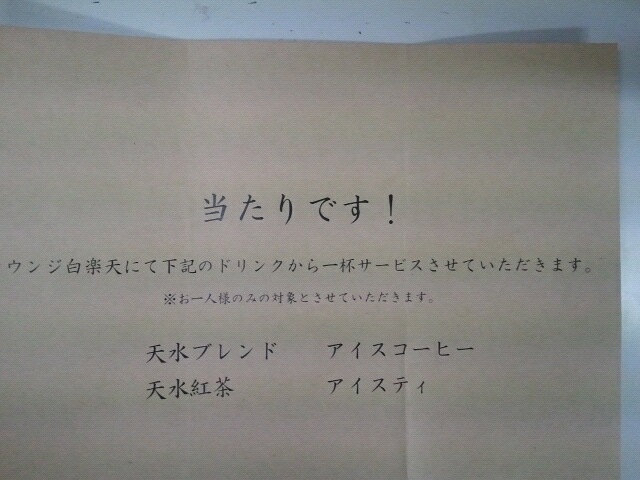 当たりです！
ウンジ白楽天にて下記のドリンクから一杯サービスさせていただきます。
※お一人様のみの対象とさせていただきます。
天水ブレンド　アイスコーヒー
天水紅茶　アイスティ